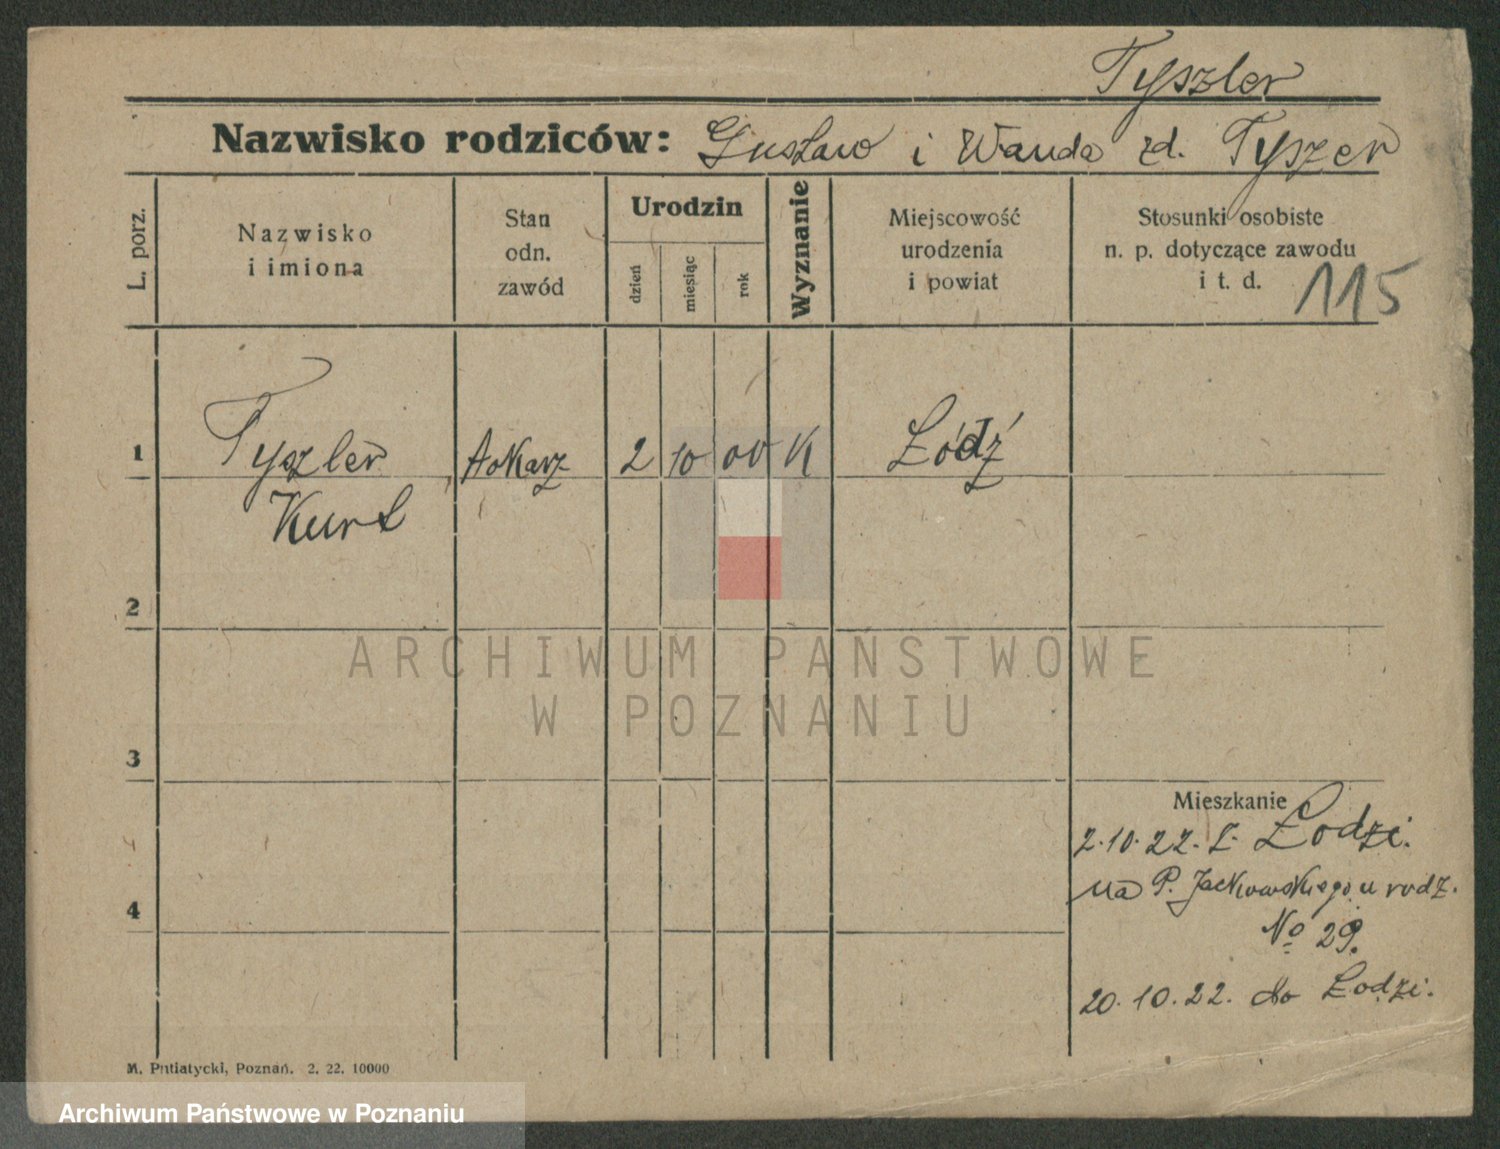 Tyszler
Nazwisko rodziców: Gustaw i Wanda zd. Tyszer
L. porz.
Nazwisko
i imiona
Stan
odn.
zawód
Urodzin
dzień
miesiąc
rok
Wyznanie
Miejscowość
urodzenia
i powiat
Stosunki osobiste
n. p. dotyczące zawodu
i t. d.
115
1 Tyszler 2 10 00 K Łódź
Kurt
2
ARCHIWUM PAŃSTWOWE
W POZNANIU
3
Mieszkanie
2.10.22. z Łodzi.
na P. Jackowskiego u rodz.
4
No 29.
20.10.22. do Łodzi.
M. Putiatycki, Poznań. 2. 22. 10000
Archiwum Państwowe w Poznaniu